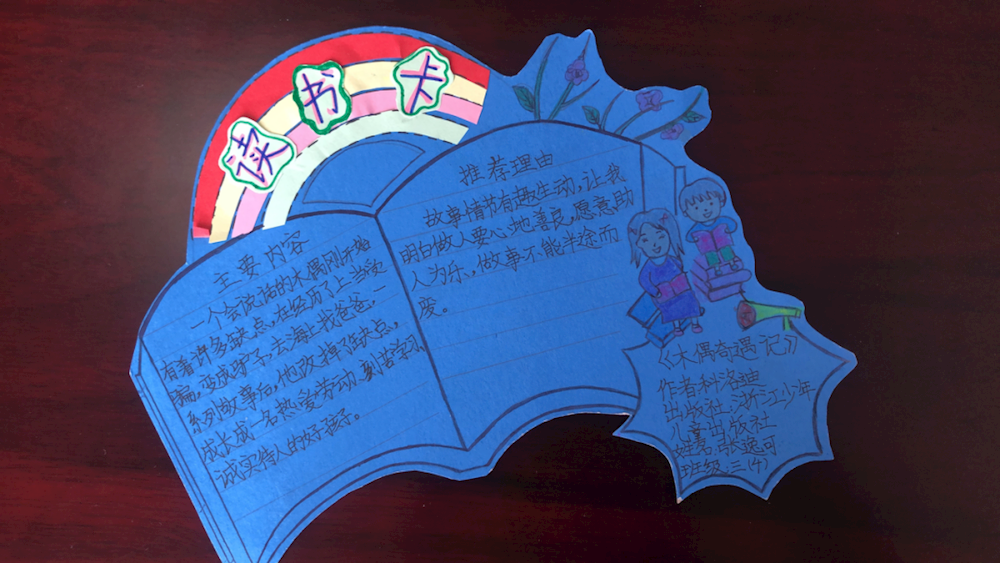 读书卡
主要内容
一个会说话的木偶刚开始
有着许多缺点,在经历了上当受
骗,变成驴子,去海上找爸爸,一
系列故事后,他改掉了缺点,
成长成一名热爱劳动,刻苦学习,
诚实待人的好孩子。
推荐理由
故事情节有趣生动,让我
明白做人要心地善良,愿意助
人为乐,做事不能半途而
废。
《木偶奇遇记》
作者:科洛迪
出版社:浙江少年
儿童出版社
姓名:张逸可
班级:三(4)